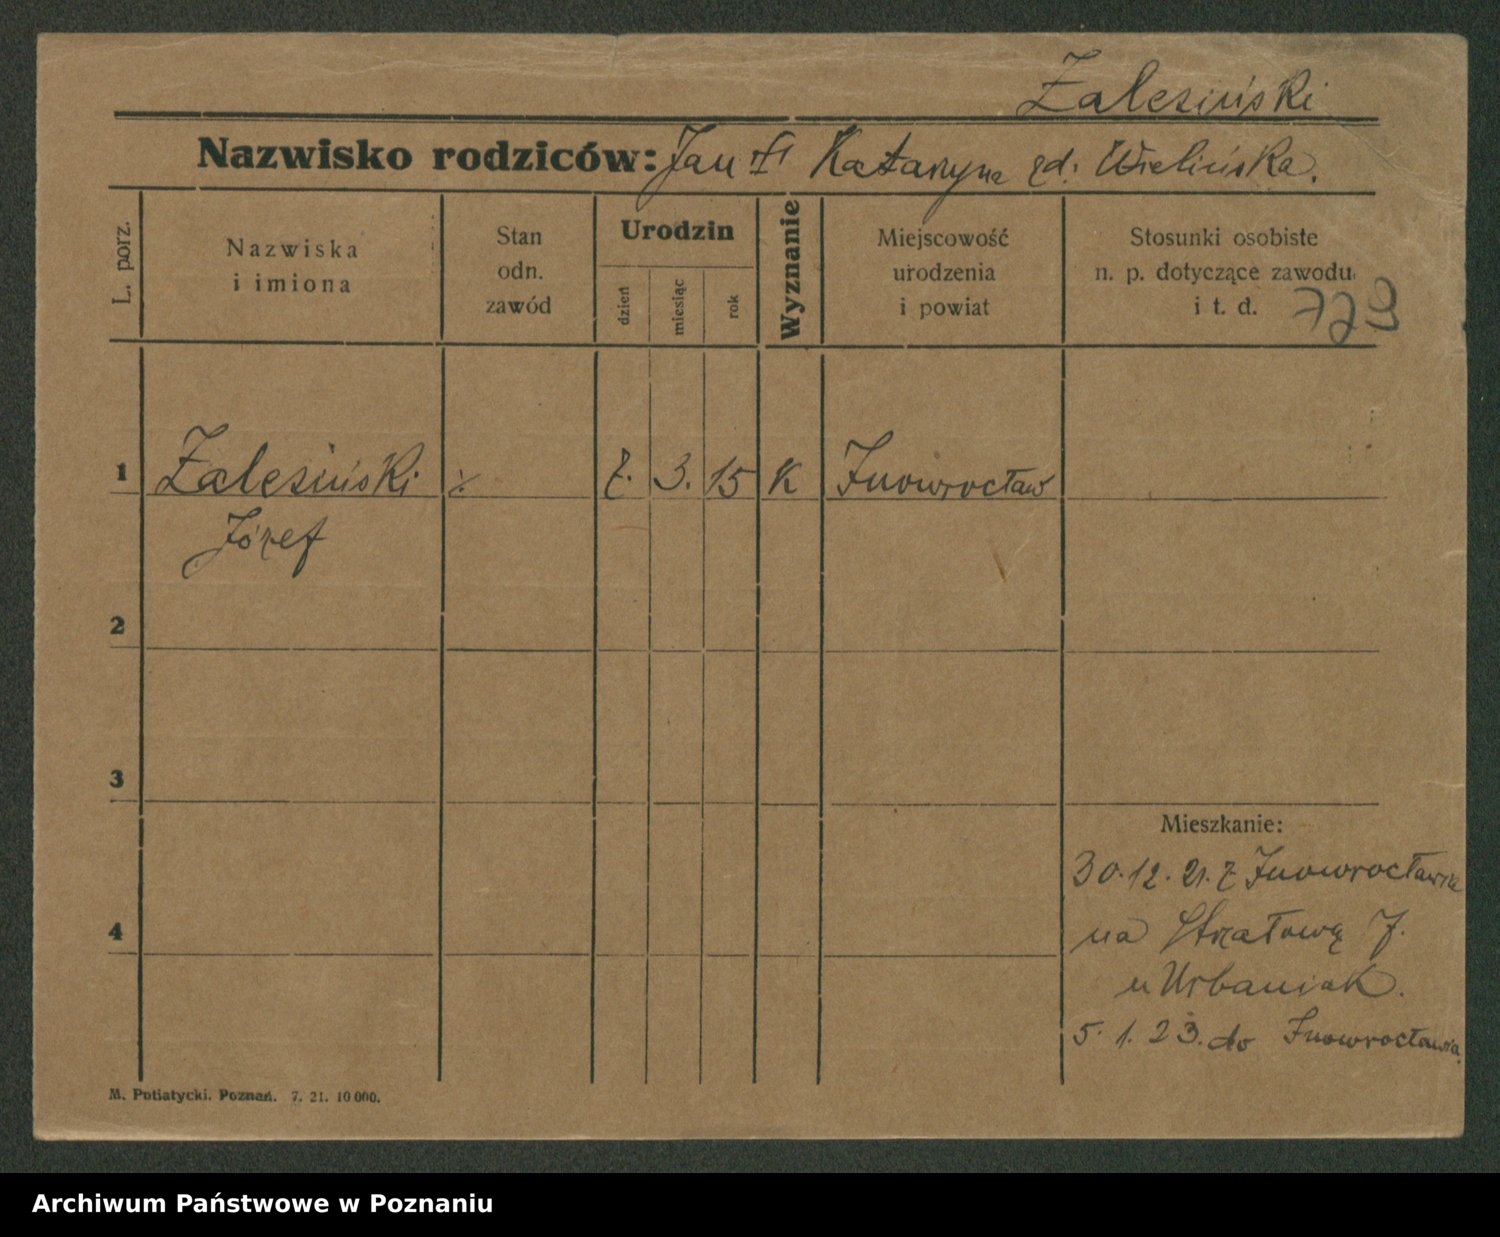 Zalesiński
Nazwisko rodziców: Jan Katarzyna Wielińska.
L. porz.
Nazwiska
i imiona
Stan
odn.
zawód
Urodzin
dzień
miesiąc
rok
Wyznanie
Miejscowość
urodzenia
i powiat
Stosunki osobiste
n. p. dotyczące zawodu
i t. d.
729
1 Zalesiński 7. 3. 15 K Inowrocław
Józef
2
3
4
Mieszkanie:
30.12.21. z Inowrocławia
na Strzałową 7.
u Urbaniak.
5.1.23. do Inowrocławia.
M. Putiatycki. Poznań. 7. 21. 10 000.
Archiwum Państwowe w Poznaniu